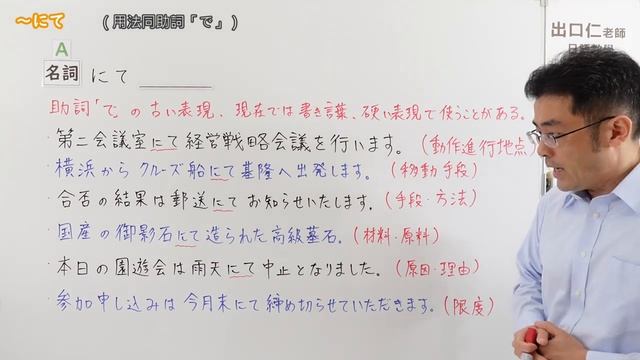 ～にて
(用法同助詞「で」)
出口仁老師
日語教學
A
名詞 にて
助詞「で」の古い表現、現在では書き言葉、硬い表現で使うことがある。
・第二会議室にて経営戦略会議を行います。(動作進行地点)
・横浜からクルーズ船にて基隆へ出発します。(移動手段)
・合否の結果は郵送にてお知らせいたします。(手段・方法)
・国産の御影石にて造られた高級墓石。(材料・原料)
・本日の園遊会は雨天にて中止となりました。(原因・理由)
・参加申し込みは今月末にて締め切らせていただきます。(限度)